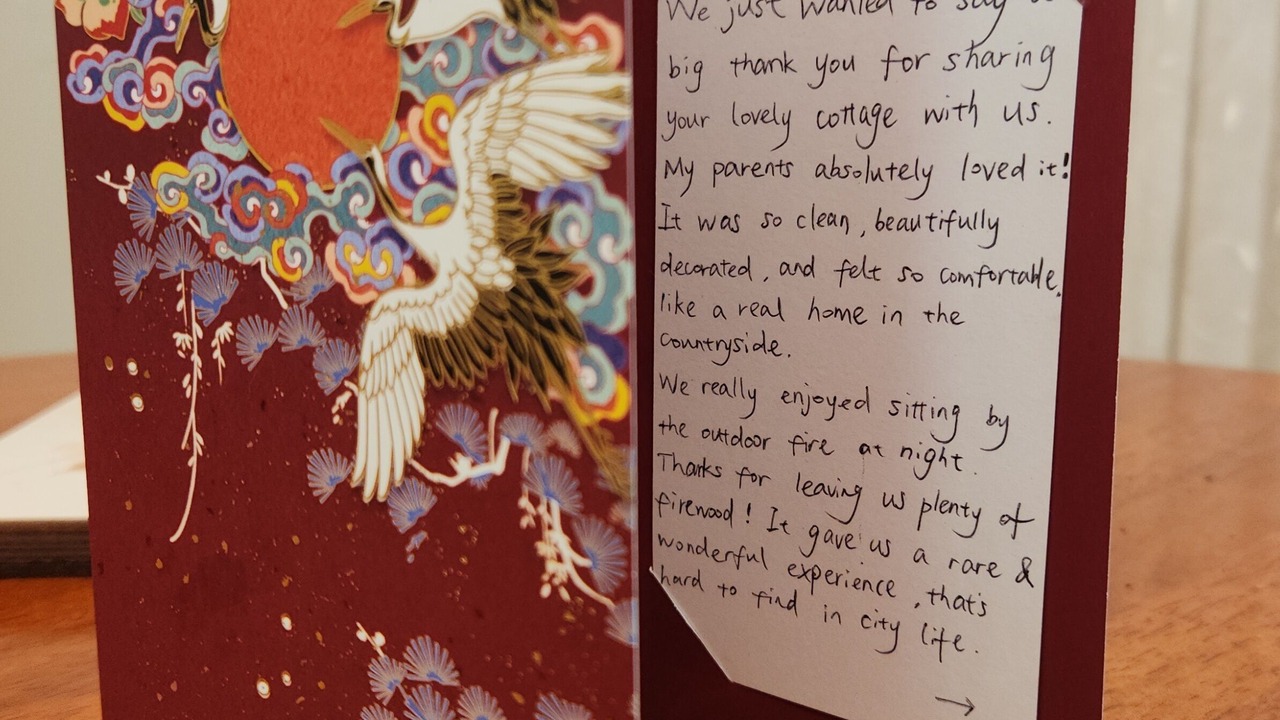 We just wanted to say a
big thank you for sharing
your lovely cottage with us.
My parents absolutely loved it!
It was so clean, beautifully
decorated, and felt so comfortable,
like a real home in the
countryside.
We really enjoyed sitting by
the outdoor fire at night.
Thanks for leaving us plenty of
firewood! It gave us a rare &
wonderful experience, that's
hard to find in city life.
→